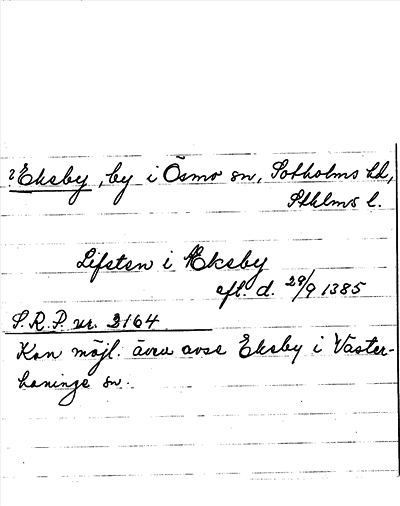 ? Eksby, by i Ösmo sn, Sotholms hd,
Sthlms l.
Lifsten i Æksby
afl. d. 29/9 1385
S.R.P. nr. 2164
Kan möjl. även avse Eksby i Väster-
haninge sn.